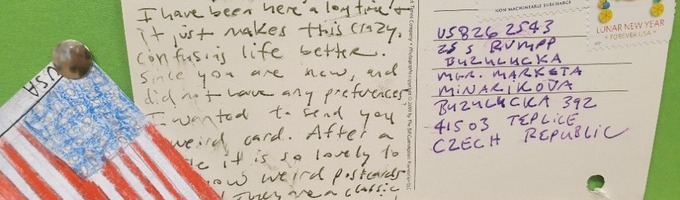 NON MACHINEABLE SURCHARGE
I have been here a long time &
it just makes this crazy,
confusing life better.
Since you are new, and
did not have any preferences
I wanted to send you
weird card. After a
it is so lovely to
weird postcards
They are a classic,
US826 2543
25 S RUMPP
BUZULUCKA
MGR. MARKETA
MINARIKOVA
BUZULUCKA 392
41503 TEPLICE
CZECH REPUBLIC
LUNAR NEW YEAR
FOREVER USA
USA